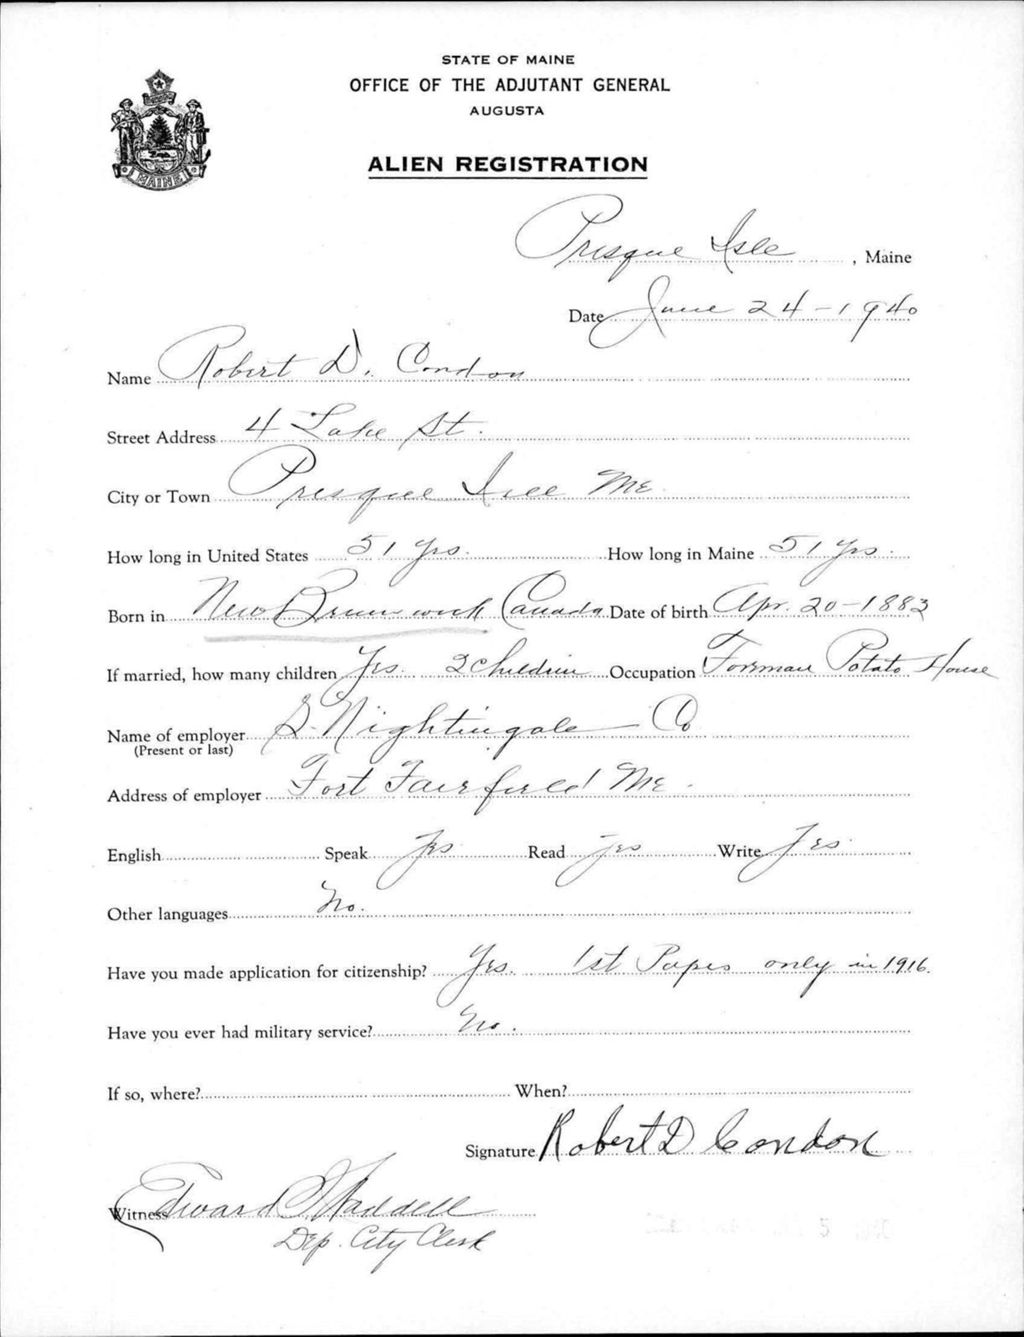 STATE OF MAINE
OFFICE OF THE ADJUTANT GENERAL
AUGUSTA
MAINE
ALIEN REGISTRATION
Presque Isle, Maine
Date June 24-1940
Name Robert D. Condon
Street Address 4 Lake St.
City or Town Presque Isle Me
How long in United States 51 yrs. How long in Maine 51 yrs.
Born in New Brunswick Canada Date of birth Apr. 20-1883
If married, how many children Yes. 2 Children Occupation Forman Potato House
Name of employer S. Nightingale Co
(Present or last)
Address of employer Fort Fairfield Me.
English Speak Yes Read yes Write Yes
Other languages No.
Have you made application for citizenship? Yes. 1st Papes only in 1916.
Have you ever had military service? No.
If so, where? When?
Signature Robert D Condon
Witness Edward Waddell
Dep. City Clerk